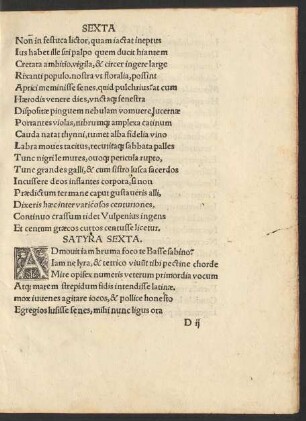 SEXTA
Non in festuca lictor, quam iactat ineptus
Ius habet ille sui palpo quem ducit hiantem
Cretata ambitio, vigila, & cicer ingere large
Rixanti populo. nostra vt floralia, possint
Aprici meminisse senes. quid pulchrius? at cum
Hærodis venere dies, vnctaq; fenestra
Dispositæ pinguem nebulam vomuere, lucernæ
Portantes violas, rubrumq; amplexa catinum
Cauda natat thynni, tumet alba fidelia vino
Labra moues tacitus, recutitaq; sabbata palles
Tunc nigri lemures, ouoq; pericula rupto,
Tunc grandes galli, & cum sistro lusca sacerdos
Incussere deos inflantes corpora, si non
Prædictum ter mane caput gustaueris alli,
Dixeris hæc inter varicosos centuriones,
Continuo crassum ridet Vulpenius ingens
Et centum græcos curtos centusse licetur.
SATYRA SEXTA.
ADmouit iam bruma foco te Basse sabino?
Iam ne lyra, & tetrico viuūt tibi pectine chordę
Mire opifex numeris veterum primordia vocum
Atq; marem strepidum fidis intendisse latinæ.
mox iuuenes agitare iocos, & pollice honesto
Egregios lusisse senes, mihi nunc ligus ora
D ij